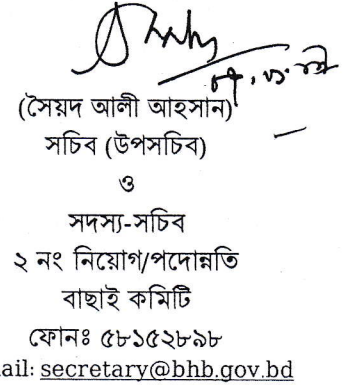 (সৈয়দ আলী আহসান)
সচিব (উপসচিব)
ও
সদস্য-সচিব
২ নং নিয়োগ/পদোন্নতি
বাছাই কমিটি
ফোনঃ ৫৮১৫২৮৯৮
ail: secretary@bhb.gov.bd